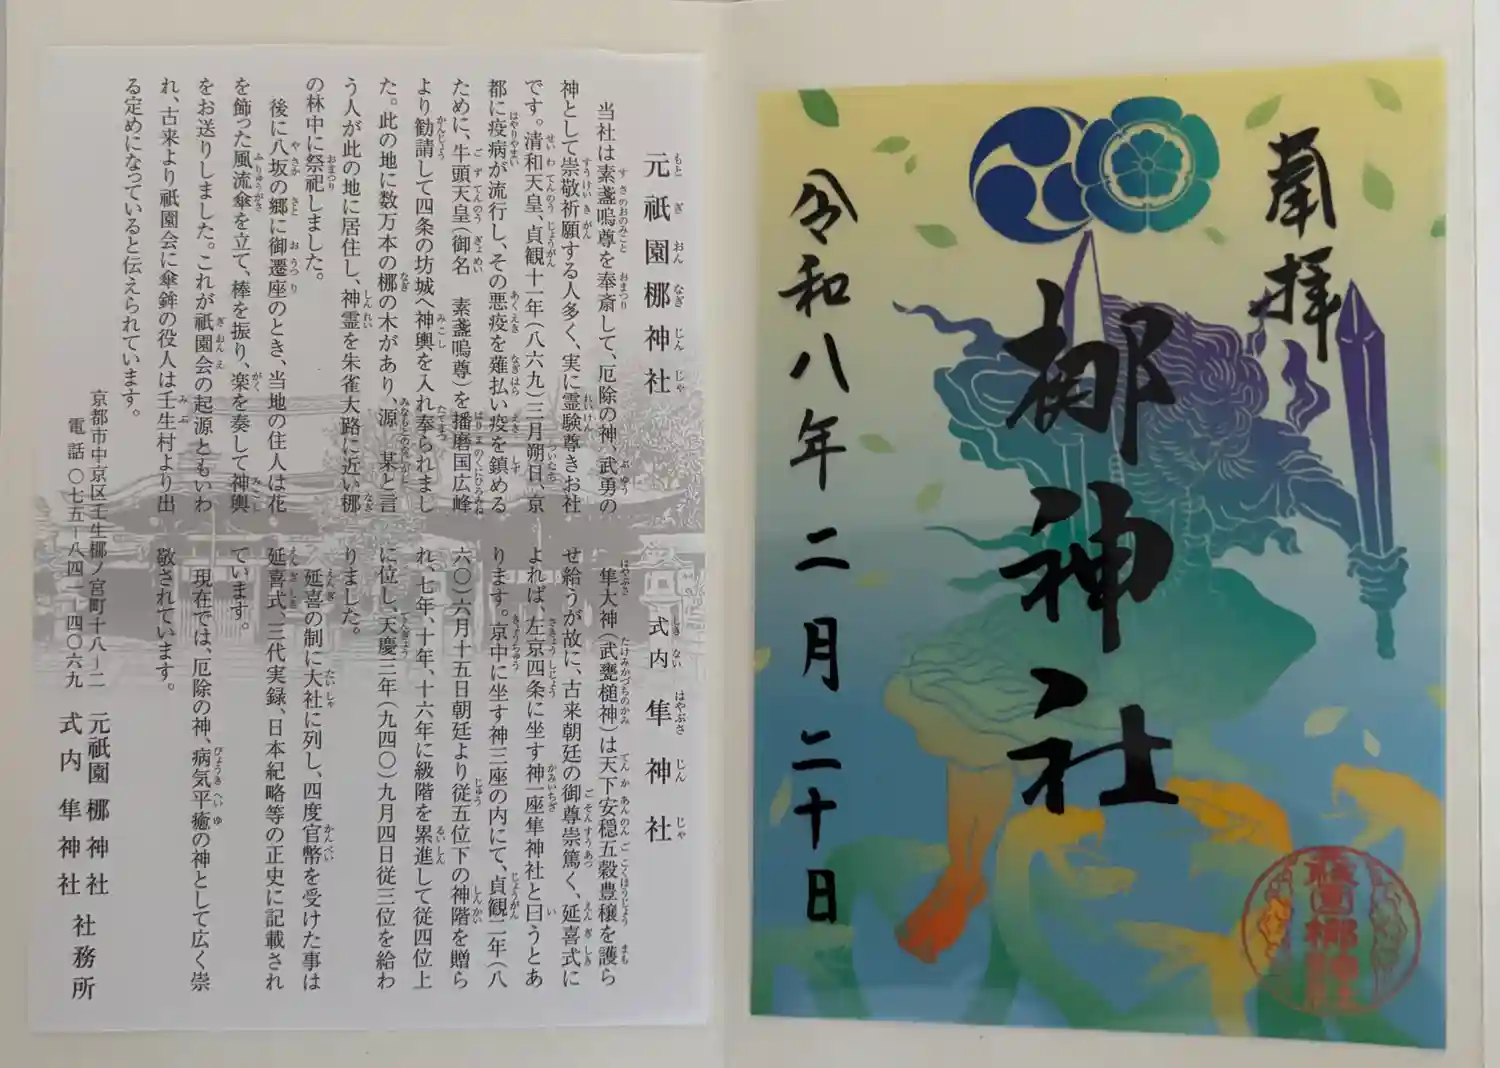 奉拝
梛神社
令和八年二月二十日
祇園梛神社
元祇園梛神社
当社は素盞嗚尊を奉斎して、厄除の神、武勇の
神として崇敬祈願する人多く、実に霊験尊きお社
です。清和天皇、貞観十一年(八六九)三月朔日、京
都に疫病が流行し、その悪疫を薙払い疫を鎮める
ために、牛頭天皇(御名 素盞嗚尊)を播磨国広峰
より勧請して四条の坊城へ神輿を入れ奉られまし
た。此の地に数万本の梛の木があり、源 某と言
う人が此の地に居住し、神霊を朱雀大路に近い梛
の林中に祭祀しました。
後に八坂の郷に御遷座のとき、当地の住人は花
を飾った風流傘を立て、棒を振り、楽を奏して神輿
をお送りしました。これが祇園会の起源ともいわ
れ、古来より祇園会に傘鉾の役人は壬生村より出
る定めになっていると伝えられています。
式内 隼神社
隼大神(武甕槌神)は天下安穏五穀豊穣を護ら
せ給うが故に、古来朝廷の御尊崇篤く、延喜式に
よれば、左京四条に坐す神一座隼神社と曰うとあ
ります。京中に坐す神三座の内にて、貞観二年(八
六〇)六月十五日朝廷より従五位下の神階を贈ら
れ、七年、十年、十六年に級階を累進して従四位上
に位し、天慶三年(九四〇)九月四日従三位を給わ
りました。
延喜の制に大社に列し、四度官幣を受けた事は
延喜式、三代実録、日本紀略等の正史に記載され
ています。
現在では、厄除の神、病気平癒の神として広く崇
敬されています。
京都市中京区壬生梛ノ宮町十八-二
電話 〇七五-八四一-四〇六九
元祇園 梛神社
式内 隼神社
社務所